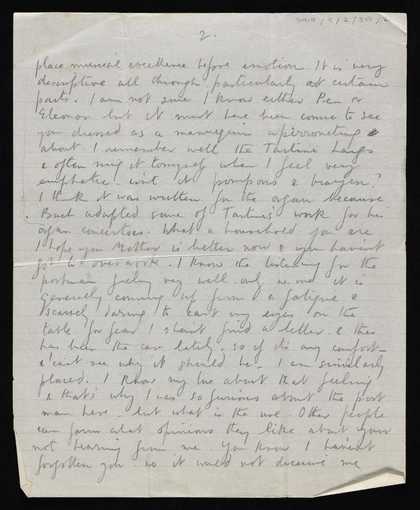 2.
place musical excellence before emotion. It is very
descriptive all through, particularly at certain
parts. I am not sure I know either Pen or
Eleanor but it must have been comic to see
you dressed as a mannequin &
about. I remember well the Tartini Largo
& often sing it to myself when I feel very
emphatic. isn't it pompous & brazen?
I think it was written for the organ because
Bach adapted some of Tartini's work for his
organ concertos. What a household you are
I hope your Mother is better now & you haven't
got to overwork. I know the listening for the
postman feeling very well. only we one it is
generally coming up from a fatigue &
scarcely daring to cast my eyes on the
table for fear I shan't find a letter. & this
has been the case lately. so if its any comfort -
& can't see why it should be - I am similarly
placed. I know my about that feeling
& that's why I was so furious about the post
man here - but what is the use. Other people
can form what opinions they like about your
not hearing from me. You know I haven't
forgotten you. so it will not deceive me